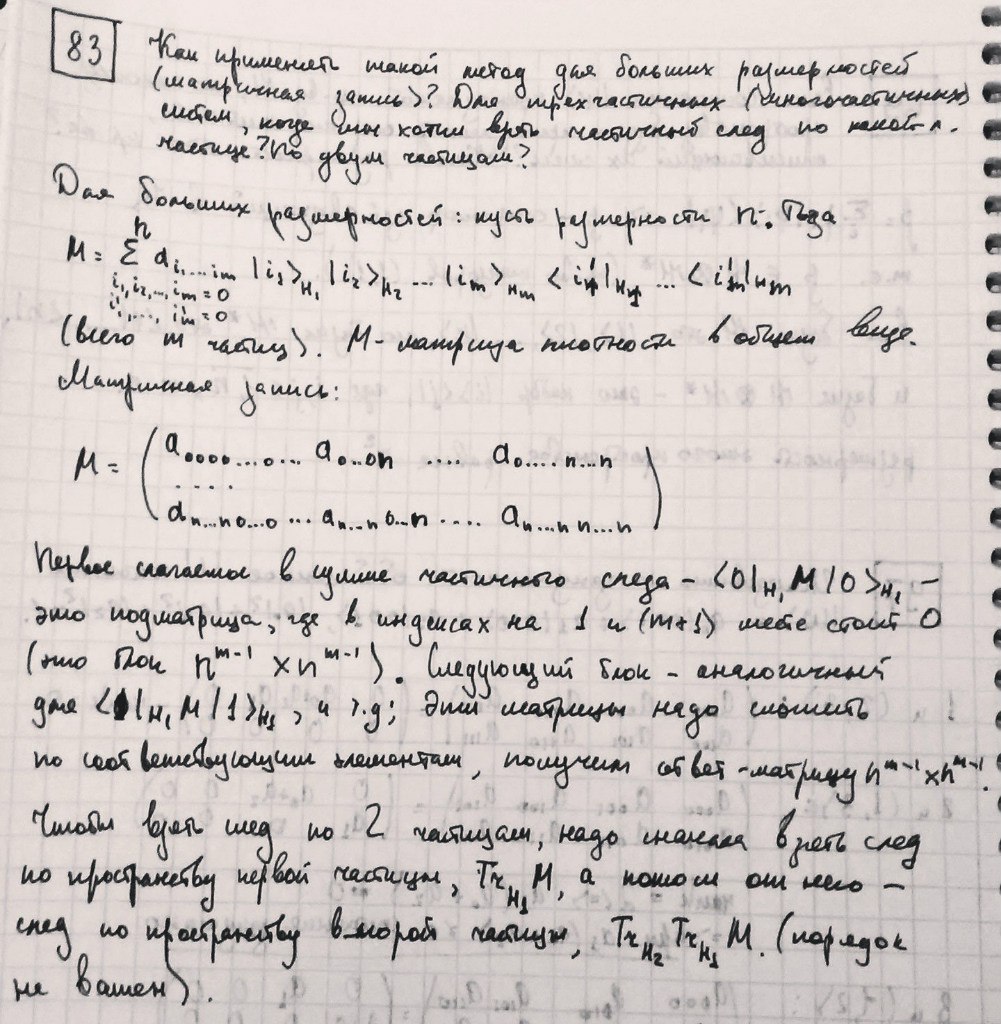 83
Как применять такой метод для больших размерностей
(матричная запись)? Для трехчастичных (многочастичных)
систем, когда мы хотим взять частичный след по какой-л.
частице? По двум частицам?
Для больших размерностей: пусть размерности n. Тогда
M = Σ^n_{i₁,i₂,...,i_m=0 i'₁,...,i'_m=0} α_{i₁...i_m} |i₁>_{H₁} |i₂>_{H₂} ... |i_m>_{H_m} <i'₁|_{H₁} ... <i'_m|_{H_m}
(всего m частиц). M - матрица плотности в общем виде.
Матричная запись:
M = ( a₀₀₀₀...₀... a₀...₀ₙ .... a₀....ₙ...ₙ
....
aₙ...ₙ₀...₀ ... aₙ...ₙ₀...ₙ .... aₙ...ₙₙ...ₙ )
Первое слагаемое в сумме частичного следа - <0|_{H₁} M |0>_{H₁} -
это подматрица, где в индексах на 1 и (m+1) месте стоит 0
(это блок n^{m-1} × n^{m-1}). Следующий блок - аналогичный
для <1|_{H₁} M |1>_{H₁}, и т.д; Эти матрицы надо сложить
по соответствующим элементам, получим ответ - матрицу n^{m-1} × n^{m-1}.
Чтобы взять след по 2 частицам, надо сначала взять след
по пространству первой частицы, Tr_{H₁} M, а потом от него -
след по пространству второй частицы, Tr_{H₂} Tr_{H₁} M. (порядок
не важен).